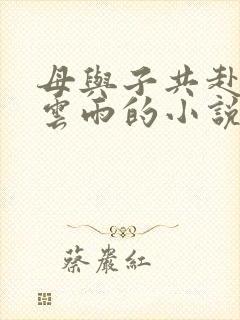 母與子共赴
雲雨的小說
蔡嚴紅